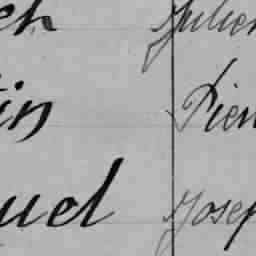 ch Julien
tin Pierr
uel Josep